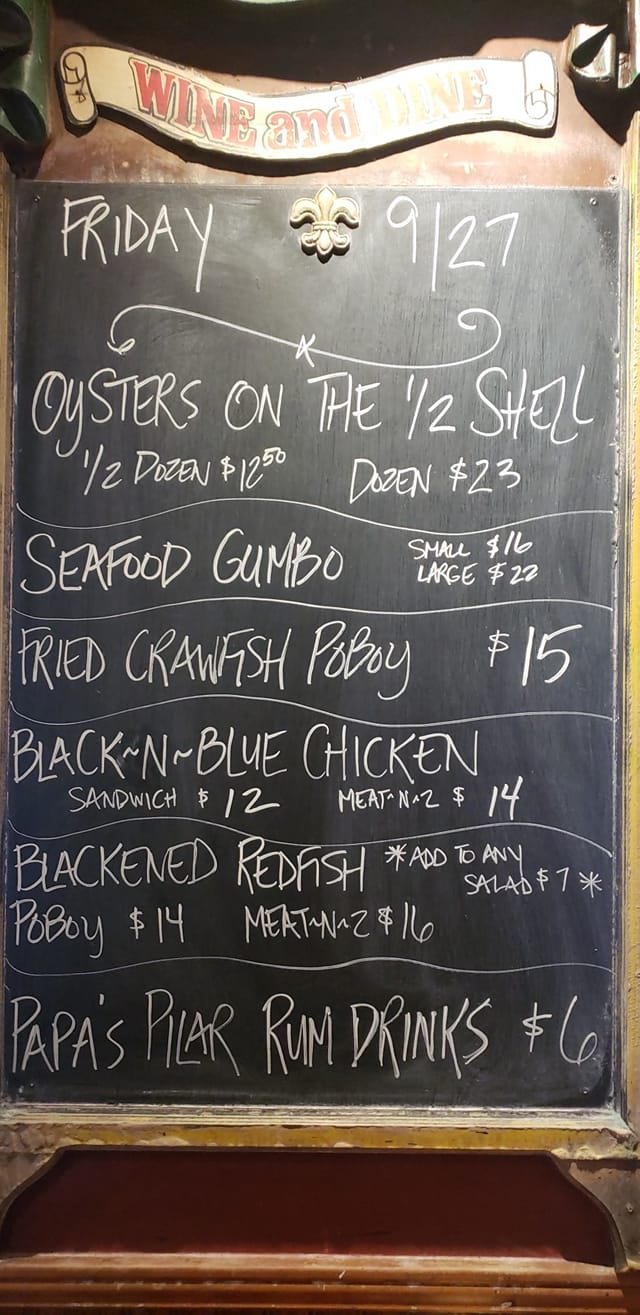 WINE and DINE
FRIDAY 9/27
OYSTERS ON THE 1/2 SHELL
1/2 DOZEN $1250 DOZEN $23
SEAFOOD GUMBO SMALL $16
LARGE $22
FRIED CRAWFISH POBOY $15
BLACK~N~BLUE CHICKEN
SANDWICH $12 MEAT~N~2 $14
BLACKENED REDFISH *ADD TO ANY
SALAD $7*
POBOY $14 MEAT~N~2 $16
PAPA'S PILAR RUM DRINKS $6